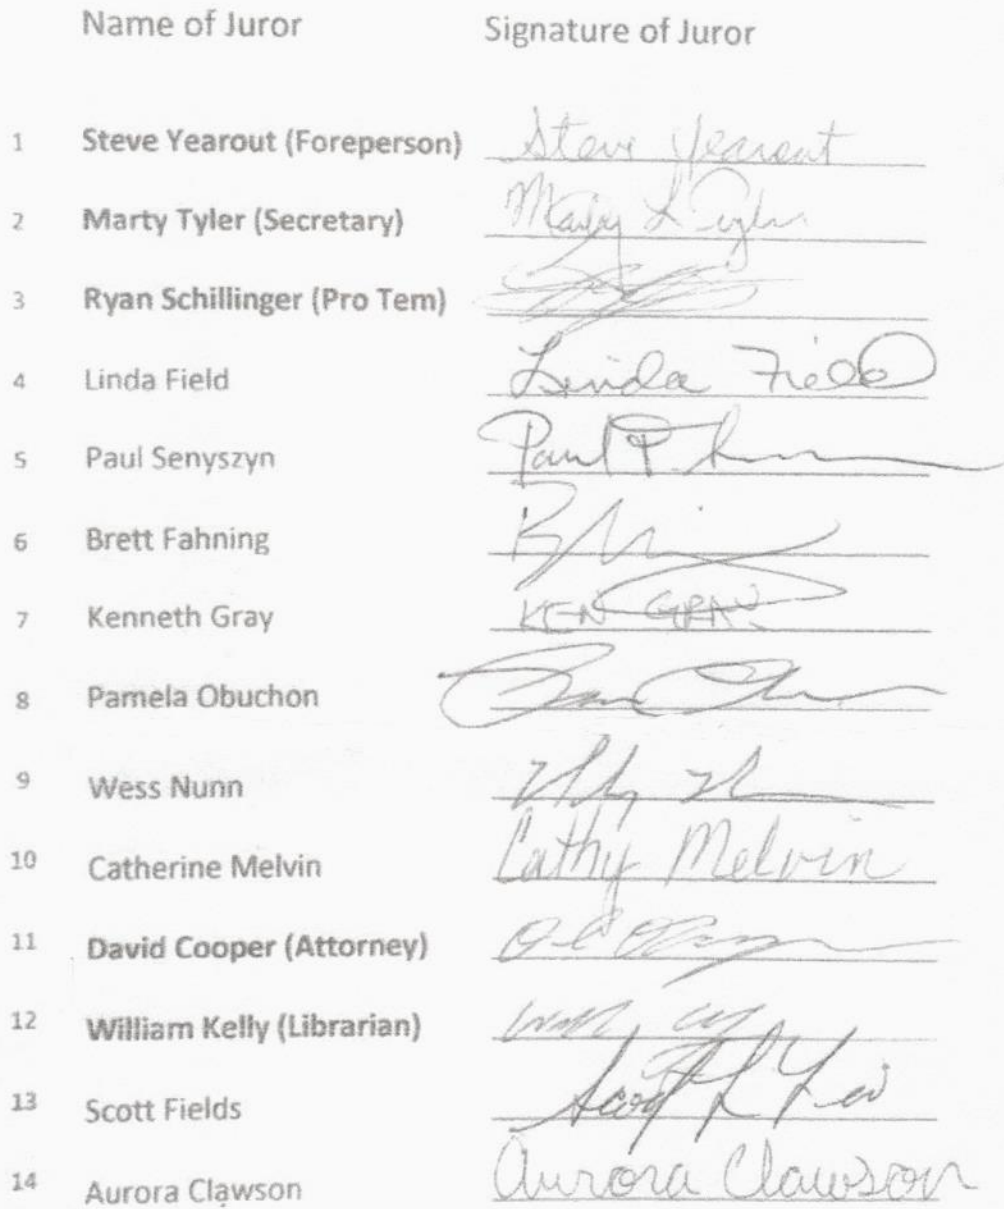 Name of Juror Signature of Juror
1 Steve Yearout (Foreperson) Steve Yearout
2 Marty Tyler (Secretary)
3 Ryan Schillinger (Pro Tem)
4 Linda Field Linda Field
5 Paul Senyszyn Paul
6 Brett Fahning
7 Kenneth Gray KEN GRAY
8 Pamela Obuchon
9 Wess Nunn
10 Catherine Melvin Cathy Melvin
11 David Cooper (Attorney)
12 William Kelly (Librarian)
13 Scott Fields Scott
14 Aurora Clawson Aurora Clawson